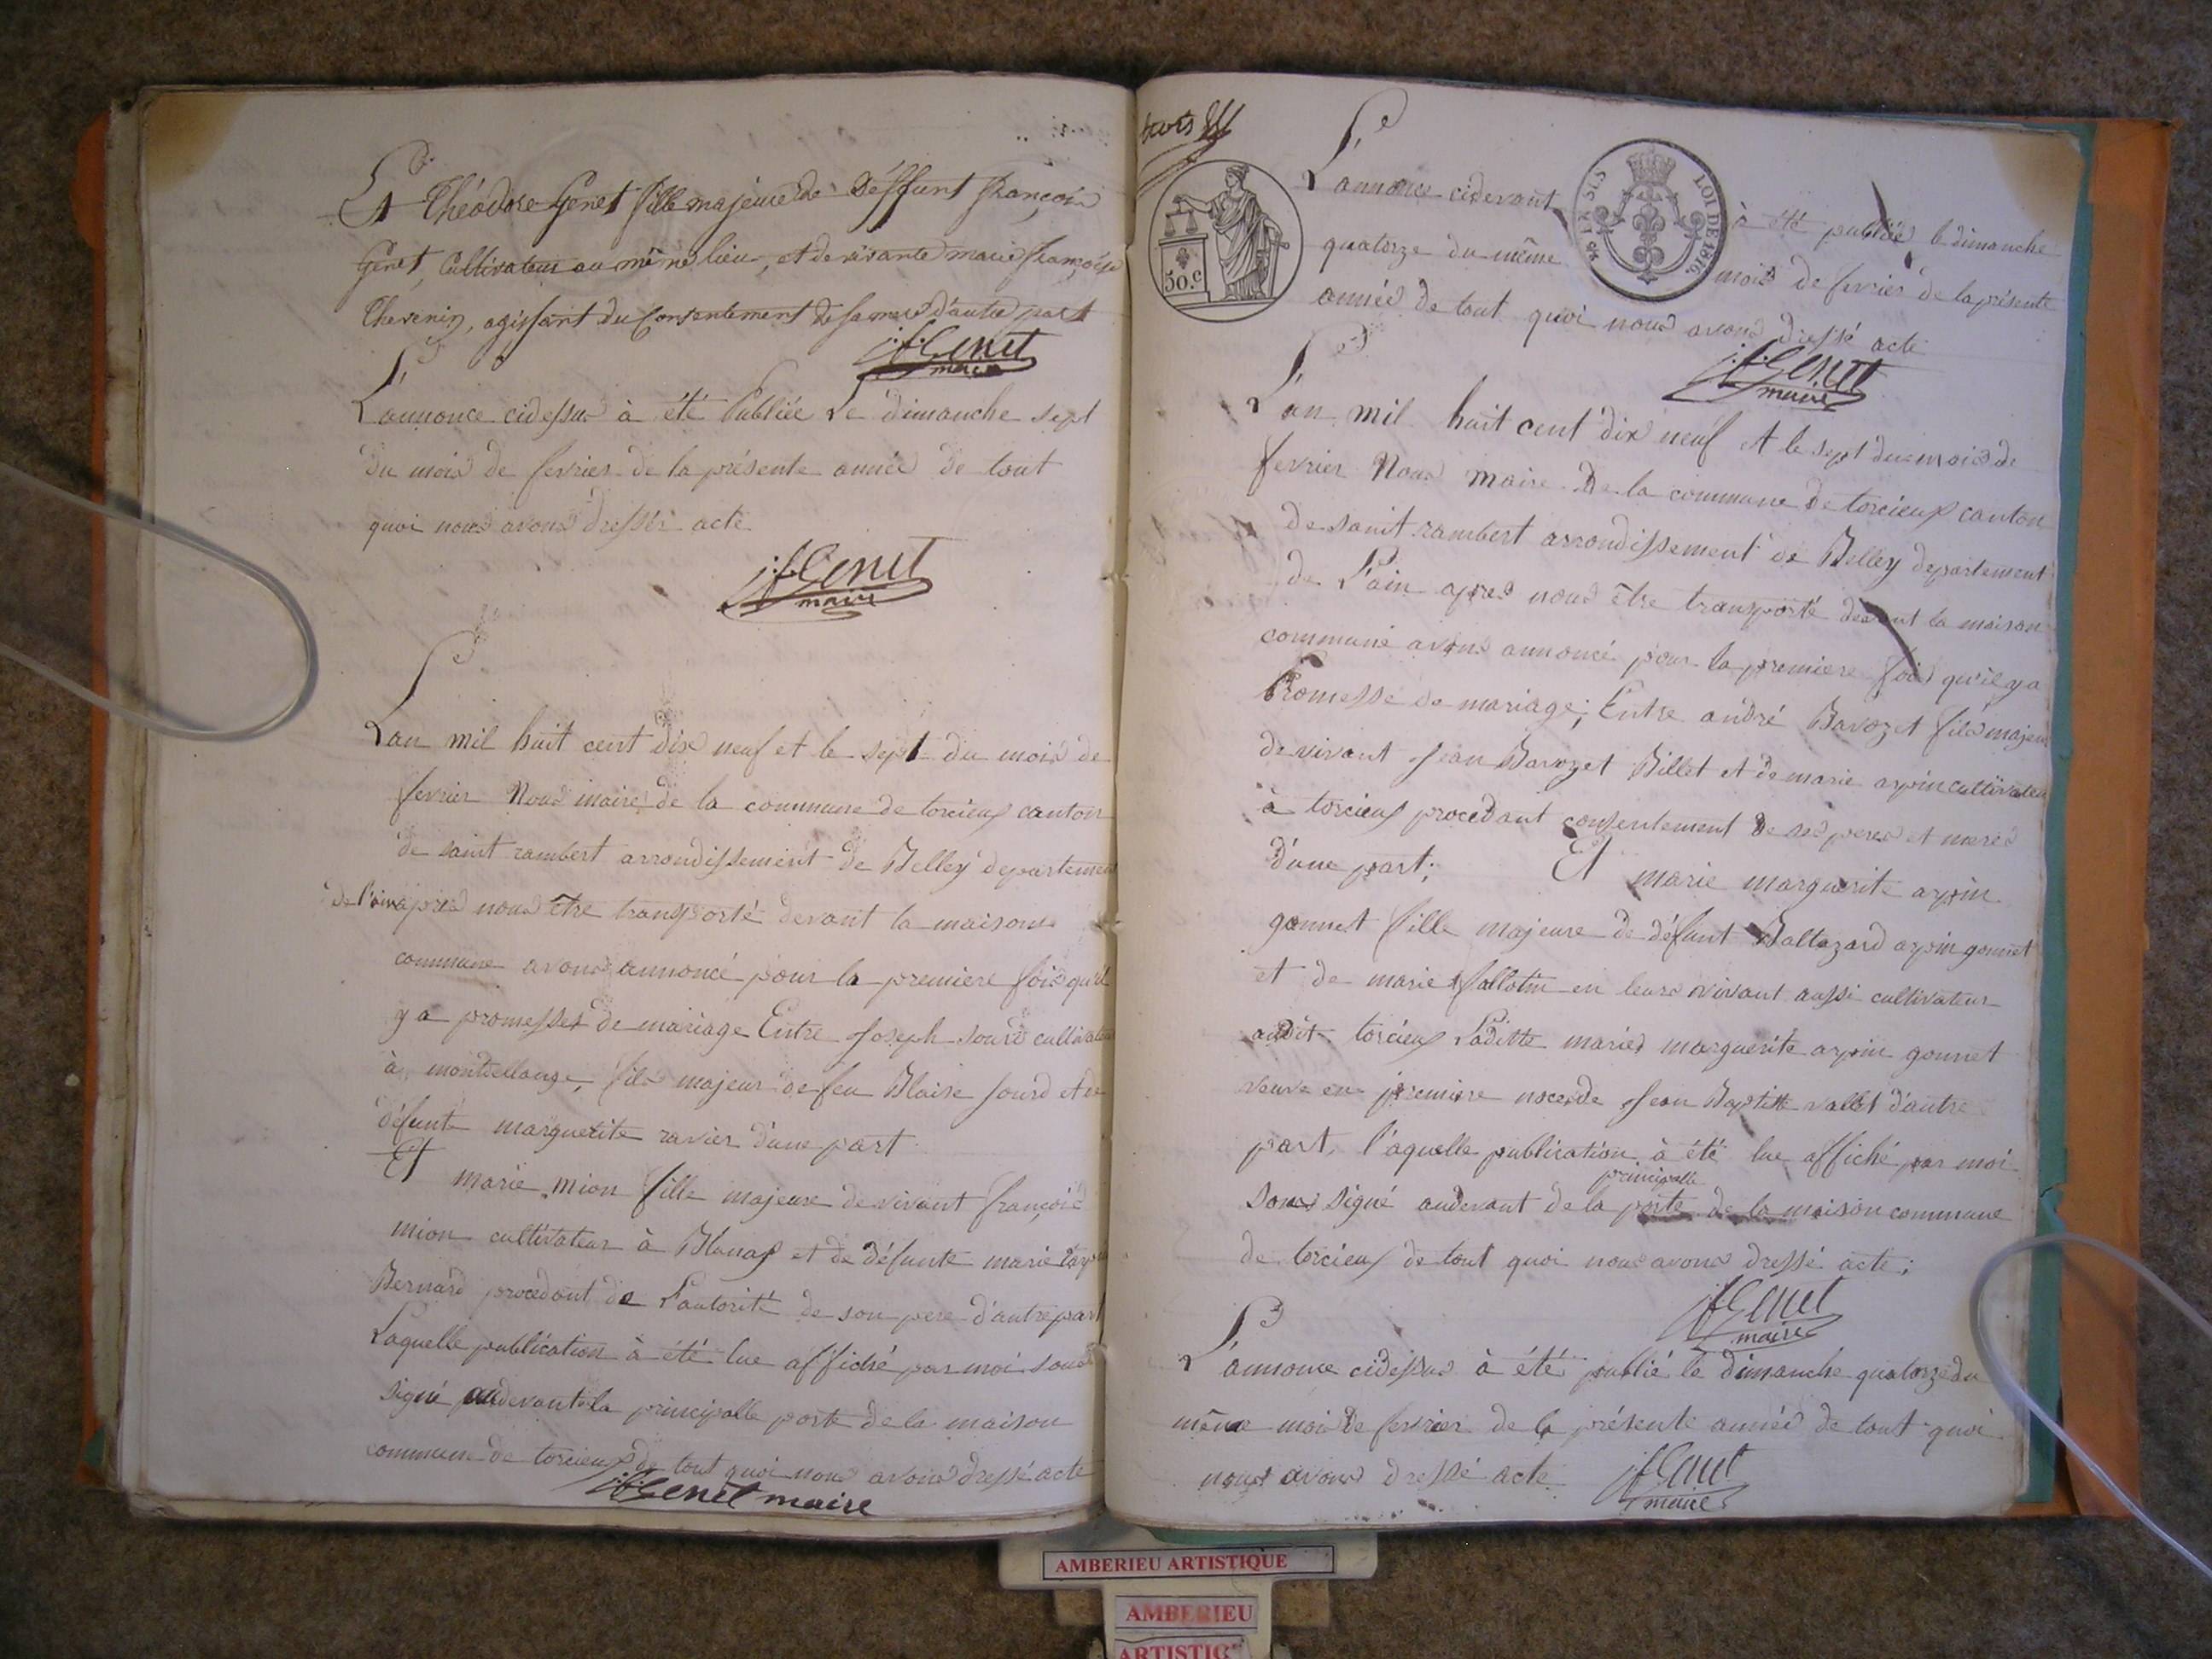 Et Théodore Genet fille majeure de déffunt françois
Genet, Cultivateur au même lieu, et de vivante marie françoise
Thevenin, agissant du Consentement de sa mere d'autre part
j.f. Genet
maire
L'annonce cidessus à été Publiée Le dimanche sept
du mois de fevrier de la présente année de tout
quoi nous avons dressés acte
j.f. Genet
maire
Lan mil huit cent dix neuf et le sept du mois de
fevrier Nous maire de la commune de torcieux canton
de saint rambert arrondissement de Belley departement
de l'ain aprés nous être transporté devant la maison
commune avons annoncé pour la premiere fois qu'il
y a promesses de mariage Entre Joseph sourd cultivateur
à montdellange, fils majeur de feu Blaise sourd et de
défunte marguerite ravier d'une part
Et marie mion fille majeure de vivant françois
mion cultivateur à Blanas et de défunte marie
Bernard procedant de L'autorité de son pere d'autre part
Laquelle publication à été lue affiché par moi sous
signé audevant la principalle porte de la maison
commune de torcieux de tout quoi nous avons dressé acte
j.f. Genet maire
trois
50.c
LOI DE 1816.
L'annonce cidevant à été publiée le dimanche
quatorze du même mois de fevrier de la présente
année de tout quoi nous avons dressé acte
j.f. Genet
maire
L'an mil huit cent dix neuf et le sept du mois de
fevrier Nous maire de la commune de torcieux canton
de sanit rambert arrondissement de Belley departement
de L'ain apres nous être transporté devant la maison
commune avons annoncé pour la premiere fois qu'il y a
Promesse de mariage; Entre andré Bavozet fils majeur
de vivant Jean Bavozet Billet et de marie arpin cultivateur
à torcieux procedant consentement de ses peres et meres
d'une part; Et marie marguerite arpin
gonnet fille majeure de défunt Baltazard arpin gonnet
et de marie fallotin en leurs vivant aussi cultivateur
audit torcieux Laditte marie marguerite arpin gonnet
veuve en premiere noces de Jean Baptiste vallet d'autre
part, l'aquelle publication à été lue affiché par moi
principalle
sous signé audevant de la porte de la maison commune
de torcieux de tout quoi nous avons dressé acte;
j.f. Genet
maire
L'annonce cidessus à été publié le dimanche quatorze du
même mois de fevrier de la présente année de tout quoi
nous avons dressé acte
j.f. Genet
maire
AMBERIEU ARTISTIQUE
AMBERIEU
ARTISTIC